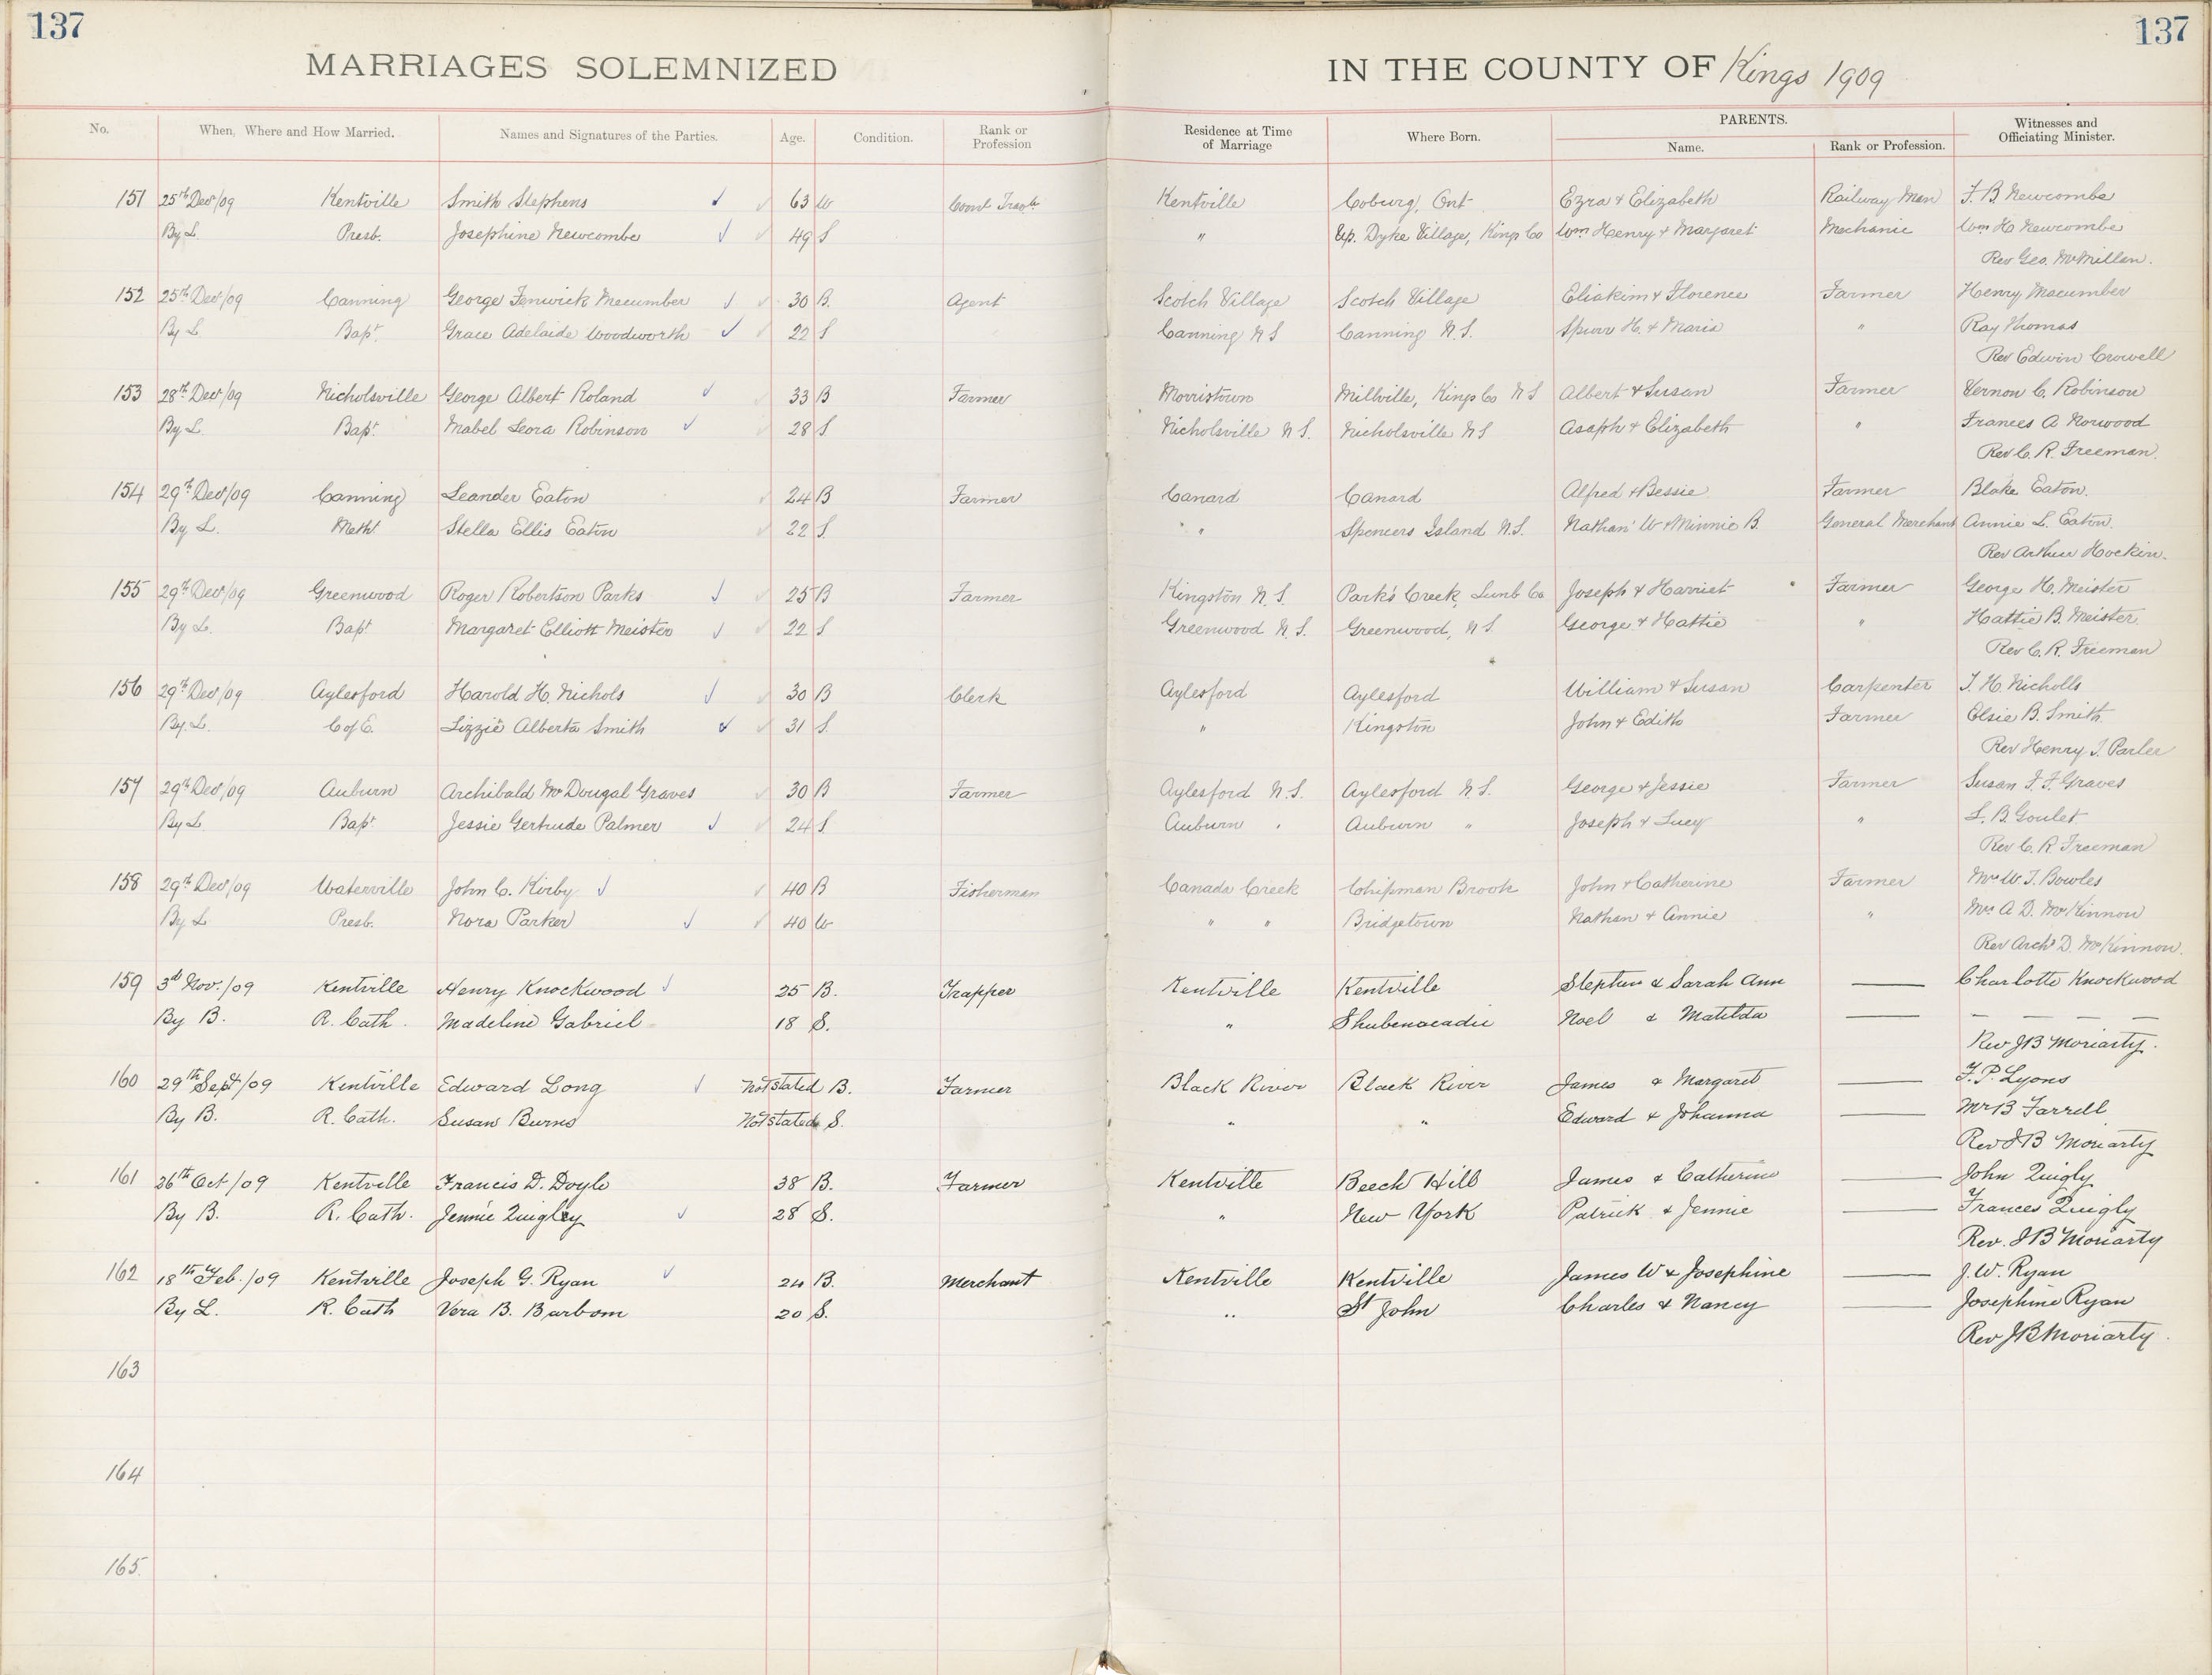 137
137
MARRIAGES SOLEMNIZED IN THE COUNTY OF Kings 1909
No. When, Where and How Married. Names and Signatures of the Parties. Age. Condition. Rank or Profession Residence at Time of Marriage Where Born. PARENTS. Name. Rank or Profession. Witnesses and Officiating Minister.
151 25th Decr/09 Kentville Smith Stephens 63 W Kentville Coburg, Ont Ezra & Elizabeth Railway Man F. B. Newcombe
By L. Presb. Josephine Newcombe 49 S " Up. Dyke Village, Kings Co Wm Henry & Margaret Mechanic Wm H. Newcombe
Rev Geo. McMillan.
152 25th Decr/09 Canning George Fenwick Macumber 30 B. Agent Scotch Village Scotch Village Eliakim & Florence Farmer Henry Macumber
By L Bapt. Grace Adelaide Woodworth 22 S Canning N S Canning N. S. Spurr H. & Maria " Ray Thomas
Rev Edwin Crowell
153 28th Decr/09 Nicholsville George Albert Roland 33 B Farmer Morristown Millville, Kings Co N S Albert & Susan Farmer Vernon C. Robinson
By L. Bapt. Mabel Leora Robinson 28 S. Nicholsville N S. Nicholsville N S Asaph & Elizabeth " Frances A Norwood
Rev C. R. Freeman.
154 29th Decr/09 Canning Leander Eaton 24 B Farmer Canard Canard Alfred & Bessie Farmer Blake Eaton.
By L. Metht Stella Ellis Eaton 22 S. " Spencers Island N.S. Nathan W & Minnie B. General Merchant Annie L. Eaton.
Rev Arthur Hockin.
155 29th Decr/09 Greenwood Roger Robertson Parks 25 B Farmer Kingston N. S. Park's Creek, Lunb Co Joseph & Harriet Farmer George H. Meister
By L. Bapt Margaret Elliott Meister 22 S Greenwood N. S. Greenwood, N S. George & Hattie " Hattie B. Meister.
Rev C. R. Freeman
156 29th Decr/09 Aylesford Harold H. Nichols 30 B Clerk Aylesford Aylesford William & Susan Carpenter J. H. Nicholls
By. L. C of E. Lizzie Alberta Smith 31 S. " Kingston John & Edith Farmer Elsie B. Smith.
Rev Henry T. Parlee
157 29th Decr/09 Auburn Archibald McDougal Graves 30 B Farmer Aylesford N.S. Aylesford N S. George & Jessie Farmer Susan F. F. Graves
By L Bapt Jessie Gertrude Palmer 24 S. Auburn " Auburn " Joseph & Lucy " L. B. Goulet
Rev C. R. Freeman
158 29th Decr/09 Waterville John C. Kirby 40 B Fisherman Canada Creek Chipman Brook John & Catherine Farmer Mrs W. T. Bowles
By L Presb. Nora Parker 40 W " " Bridgetown Nathan & Annie " Mrs A. D. McKinnon
Rev Archd D. McKinnon.
159 3d Nov./09 Kentville Henry Knockwood 25 B. Trapper Kentville Kentville Stephen & Sarah Ann — Charlotte Knockwood
By B. R. Cath. Madeline Gabriel 18 S. " Shubenacadie Noel & Matilda — — — — —
Rev JB Moriarty.
160 29th Sept/09 Kentville Edward Long Not stated B. Farmer Black River Black River James & Margaret — F. P. Lyons
By B. R. Cath. Susan Burns Not stated S. " " Edward & Johanna — Mr B Farrell
Rev JB Moriarty
161 26th Oct/09 Kentville Francis D. Doyle 38 B. Farmer Kentville Beech Hill James & Catherine — John Quigly
By B. R. Cath. Jennie Quigley 28 S. " New York Patrick & Jennie — Frances Quigly
Rev. JB Moriarty
162 18th Feb./09 Kentville Joseph G. Ryan 24 B. Merchant Kentville Kentville James W & Josephine — J. W. Ryan
By L. R. Cath Vera B. Barbom 20 S. " St John Charles & Nancy — Josephine Ryan
Rev JB Moriarty.
163
164
165.